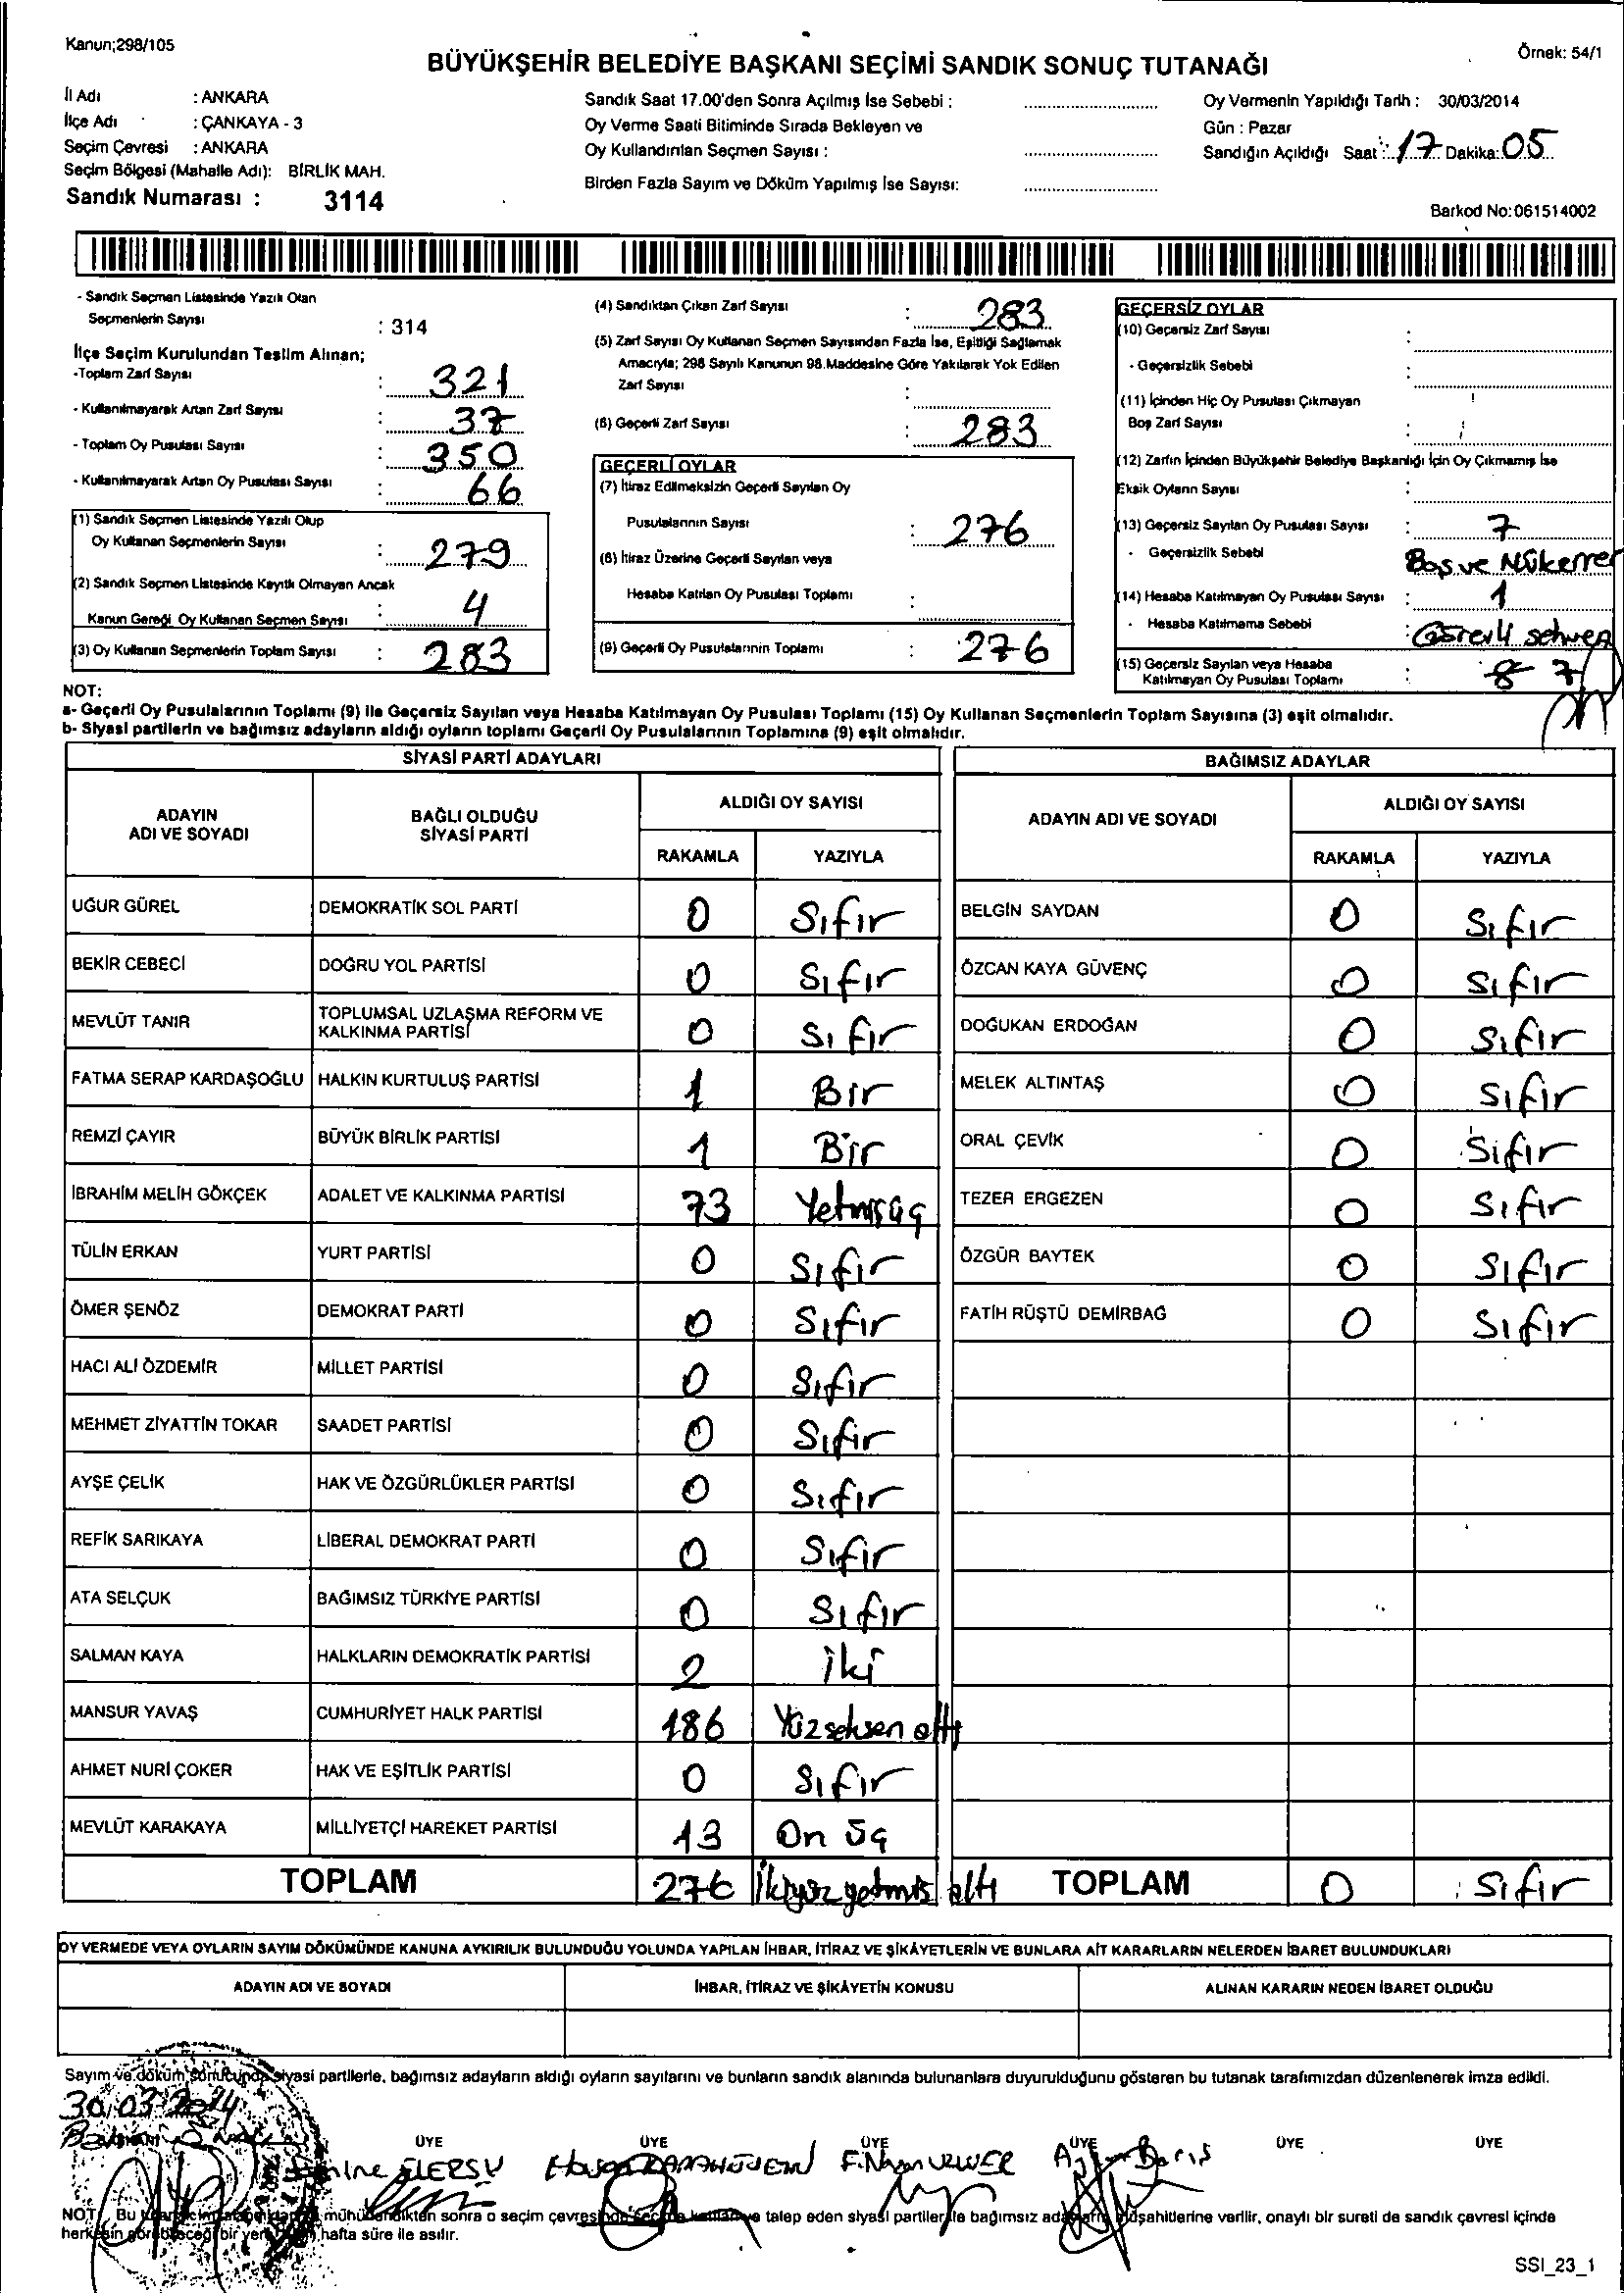 Kanun;298/105
Örnek: 54/1
BÜYÜKŞEHİR BELEDİYE BAŞKANI SEÇİMİ SANDIK SONUÇ TUTANAĞI
İl Adı : ANKARA
İlçe Adı : ÇANKAYA - 3
Seçim Çevresi : ANKARA
Seçim Bölgesi (Mahalle Adı): BİRLİK MAH.
Sandık Numarası : 3114
Sandık Saat 17.00'den Sonra Açılmış İse Sebebi :
Oy Verme Saati Bitiminde Sırada Bekleyen ve
Oy Kullandırılan Seçmen Sayısı :
Birden Fazla Sayım ve Döküm Yapılmış İse Sayısı:
Oy Vermenin Yapıldığı Tarih : 30/03/2014
Gün : Pazar
Sandığın Açıldığı Saat : 17 Dakika: 05
Barkod No:061514002
- Sandık Seçmen Listesinde Yazılı Olan
Seçmenlerin Sayısı : 314
İlçe Seçim Kurulundan Teslim Alınan;
-Toplam Zarf Sayısı : 321
- Kullanılmayarak Artan Zarf Sayısı : 37
- Toplam Oy Pusulası Sayısı : 350
- Kullanılmayarak Artan Oy Pusulası Sayısı : 66
(1) Sandık Seçmen Listesinde Yazılı Olup
Oy Kullanan Seçmenlerin Sayısı : 279
(2) Sandık Seçmen Listesinde Kayıtlı Olmayan Ancak
Kanun Gereği Oy Kullanan Seçmen Sayısı : 4
(3) Oy Kullanan Seçmenlerin Toplam Sayısı : 283
(4) Sandıktan Çıkan Zarf Sayısı : 283
(5) Zarf Sayısı Oy Kullanan Seçmen Sayısından Fazla İse, Eşitliği Sağlamak
Amacıyla; 298 Sayılı Kanunun 98.Maddesine Göre Yakılarak Yok Edilen
Zarf Sayısı :
(6) Geçerli Zarf Sayısı : 283
GEÇERLİ OYLAR
(7) İtiraz Edilmeksizin Geçerli Sayılan Oy
Pusulalarının Sayısı : 276
(8) İtiraz Üzerine Geçerli Sayılan veya
Hesaba Katılan Oy Pusulası Toplamı :
(9) Geçerli Oy Pusulalarının Toplamı : 276
GEÇERSİZ OYLAR
(10) Geçersiz Zarf Sayısı :
- Geçersizlik Sebebi :
(11) İçinden Hiç Oy Pusulası Çıkmayan
Boş Zarf Sayısı :
(12) Zarfın İçinden Büyükşehir Belediye Başkanlığı İçin Oy Çıkmamış İse
Eksik Oyların Sayısı :
(13) Geçersiz Sayılan Oy Pusulası Sayısı : 7
- Geçersizlik Sebebi Boş ve Mükerrer
(14) Hesaba Katılmayan Oy Pusulası Sayısı : 1
- Hesaba Katılmama Sebebi : Görevli sehven
(15) Geçersiz Sayılan veya Hesaba
Katılmayan Oy Pusulası Toplamı : 8 7
NOT:
a- Geçerli Oy Pusulalarının Toplamı (9) ile Geçersiz Sayılan veya Hesaba Katılmayan Oy Pusulası Toplamı (15) Oy Kullanan Seçmenlerin Toplam Sayısına (3) eşit olmalıdır.
b- Siyasi partilerin ve bağımsız adayların aldığı oyların toplamı Geçerli Oy Pusulalarının Toplamına (9) eşit olmalıdır.
SİYASİ PARTİ ADAYLARI
ADAYIN ADI VE SOYADI BAĞLI OLDUĞU SİYASİ PARTİ ALDIĞI OY SAYISI
RAKAMLA YAZIYLA
UĞUR GÜREL DEMOKRATİK SOL PARTİ 0 Sıfır
BEKİR CEBECİ DOĞRU YOL PARTİSİ 0 Sıfır
MEVLÜT TANIR TOPLUMSAL UZLAŞMA REFORM VE KALKINMA PARTİSİ 0 Sıfır
FATMA SERAP KARDAŞOĞLU HALKIN KURTULUŞ PARTİSİ 1 Bir
REMZİ ÇAYIR BÜYÜK BİRLİK PARTİSİ 1 Bir
İBRAHİM MELİH GÖKÇEK ADALET VE KALKINMA PARTİSİ 73 Yetmişüç
TÜLİN ERKAN YURT PARTİSİ 0 Sıfır
ÖMER ŞENÖZ DEMOKRAT PARTİ 0 Sıfır
HACI ALİ ÖZDEMİR MİLLET PARTİSİ 0 Sıfır
MEHMET ZİYATTİN TOKAR SAADET PARTİSİ 0 Sıfır
AYŞE ÇELİK HAK VE ÖZGÜRLÜKLER PARTİSİ 0 Sıfır
REFİK SARIKAYA LİBERAL DEMOKRAT PARTİ 0 Sıfır
ATA SELÇUK BAĞIMSIZ TÜRKİYE PARTİSİ 0 Sıfır
SALMAN KAYA HALKLARIN DEMOKRATİK PARTİSİ 2 iki
MANSUR YAVAŞ CUMHURİYET HALK PARTİSİ 186 Yüzseksen altı
AHMET NURİ ÇOKER HAK VE EŞİTLİK PARTİSİ 0 Sıfır
MEVLÜT KARAKAYA MİLLİYETÇİ HAREKET PARTİSİ 13 On üç
TOPLAM 276 İkiyüzyetmiş altı
BAĞIMSIZ ADAYLAR
ADAYIN ADI VE SOYADI ALDIĞI OY SAYISI
RAKAMLA YAZIYLA
BELGİN SAYDAN 0 Sıfır
ÖZCAN KAYA GÜVENÇ 0 Sıfır
DOĞUKAN ERDOĞAN 0 Sıfır
MELEK ALTINTAŞ 0 Sıfır
ORAL ÇEVİK 0 Sıfır
TEZER ERGEZEN 0 Sıfır
ÖZGÜR BAYTEK 0 Sıfır
FATİH RÜŞTÜ DEMİRBAĞ 0 Sıfır
TOPLAM 0 Sıfır
OY VERMEDE VEYA OYLARIN SAYIM DÖKÜMÜNDE KANUNA AYKIRILIK BULUNDUĞU YOLUNDA YAPILAN İHBAR, İTİRAZ VE ŞİKÂYETLERİN VE BUNLARA AİT KARARLARIN NELERDEN İBARET BULUNDUKLARI
ADAYIN ADI VE SOYADI İHBAR, İTİRAZ VE ŞİKÂYETİN KONUSU ALINAN KARARIN NEDEN İBARET OLDUĞU
Sayım ve döküm sonucunda siyasi partilerle, bağımsız adayların aldığı oyların sayılarını ve bunların sandık alanında bulunanlara duyurulduğunu gösteren bu tutanak tarafımızdan düzenlenerek imza edildi.
30/03/2014
ÜYE ÜYE ÜYE ÜYE ÜYE ÜYE
Barış
NOT: Bu mühürlendikten sonra o seçim çevresinde seçime katılan ve talep eden siyasi partiler ile bağımsız aday müşahitlerine verilir, onaylı bir sureti de sandık çevresi içinde
herkesin görebileceği bir yere hafta süre ile asılır.
SSI_23_1